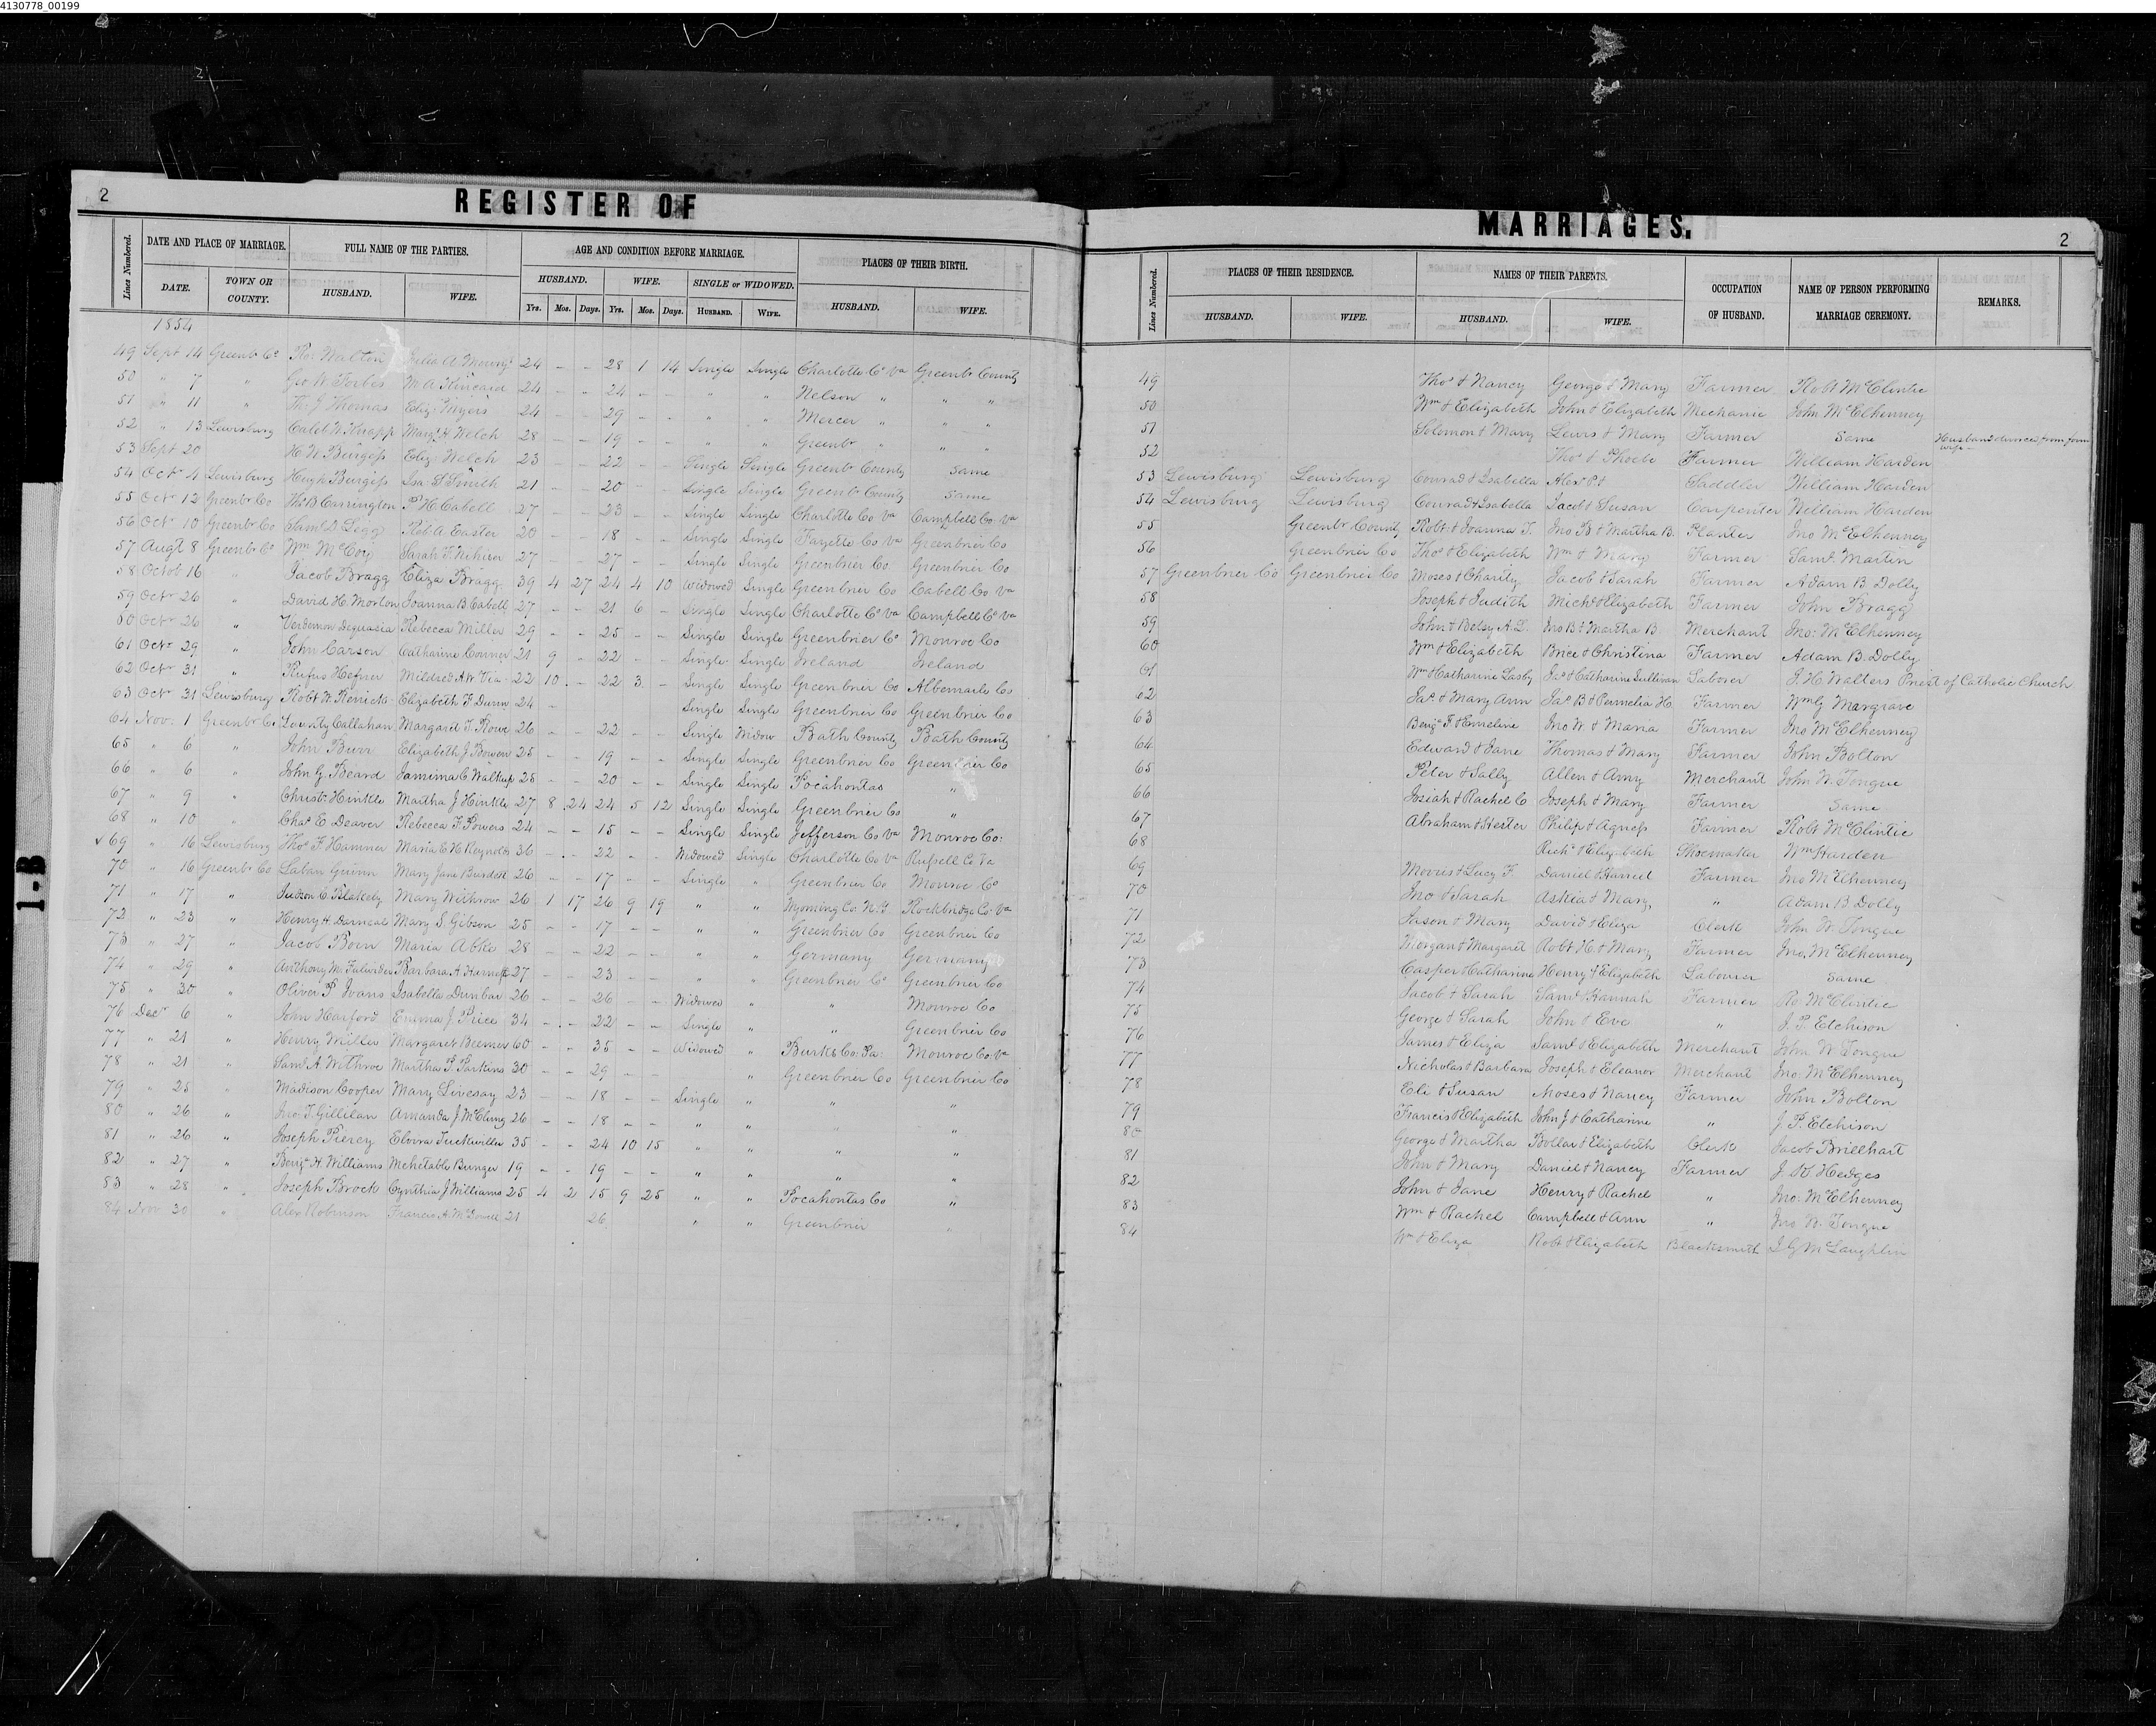 4130778_00199
2 REGISTER OF MARRIAGES. 2
Lines Numbered. DATE AND PLACE OF MARRIAGE. FULL NAME OF THE PARTIES. AGE AND CONDITION BEFORE MARRIAGE. PLACES OF THEIR BIRTH.
DATE. TOWN OR COUNTY. HUSBAND. WIFE. HUSBAND. WIFE. SINGLE or WIDOWED. HUSBAND. WIFE.
Yrs. Mos. Days. Yrs. Mos. Days. HUSBAND. WIFE.
1854
49 Sept 14 Greenbr Co Ro: Walton Julia A 24 - - 28 1 14 Single Single Charlotte Co Va Greenbr County
50 " 7 " Geo W. Forbes M. A Kincaid 24 - - 24 - - " " Nelson " " "
51 " 11 " Th: J Thomas Eliz: Myers 24 - - 29 - - " " Mercer " " "
52 " 13 Lewisburg Caleb W. Knapp Margt H. Welch 28 - - 19 - - " " Greenbr " " "
53 Sept 20 H W Burgess Eliz: Welch 23 - - 22 - - Single Single Greenbr County Same
54 Octr 4 Lewisburg Hugh Burgess Isa: Smith 21 - - 20 - - Single Single Greenbr County Same
55 Octr 12 Greenbr Co Th: B Carrington P. H. Cabell 27 - - 23 - - Single Single Charlotte Co Va Campbell Co Va
56 Octr 10 Greenbr Co Saml D. Legg Reb: A. Easter 20 - - 18 - - Single Single Fayette Co Va Greenbrier Co
57 Augt 8 Greenbr Co Wm McCoy Sarah F. 27 - - 27 - - Single Single Greenbrier Co Greenbrier Co
58 Octob 16 " Jacob Bragg Eliza Bragg 39 4 27 24 4 10 Widowed Single Greenbrier Co Cabell Co Va
59 Octr 26 " David H. Morton Joanna B. Cabell 27 - - 21 6 - Single Single Charlotte Co Va Campbell Co Va
60 Octr 26 " Verdemon Dequasia Rebecca Miller 29 - - 25 - - Single Single Greenbrier Co Monroe Co
61 Octr 29 " John Carson Catharine Conner 21 9 - 22 - - Single Single Ireland Ireland
62 Octr 31 " Rufus Hefner Mildred A W Via 22 10 - 22 3 - Single Single Greenbrier Co Albemarle Co
63 Octr 31 Lewisburg Robt W. Renick Elizabeth F. Dunn 24 - Single Single Greenbrier Co Greenbrier Co
64 Nov: 1 Greenbr Co Callahan Margaret T. Rowe 26 - - 22 - - Single Widow Bath County Bath County
65 " 6 " John Burr Elizabeth J. Bowen 25 - - 19 - - Single Single Greenbrier Co Greenbrier Co
66 " 6 " John G. Beard Jamima C. Walkup 25 - - 20 - - Single Single Pocahontas "
67 " 9 " Christr Hinkle Martha J. Hinkle 27 8 24 24 5 12 Single Single Greenbrier Co "
68 " 10 " Chas E Deaver Rebecca F. Powers 24 - - 15 - - Single Single Jefferson Co Va Monroe Co:
√ 69 " 16 Lewisburg Thos F. Hamner Maria C. H Reynolds 36 - - 22 - - Widowed Single Charlotte Co Va Russell Co Va
70 " 16 Greenbr Co Laban Guinn Mary Jane Burdett 26 - - 17 - - Single " Greenbrier Co Monroe Co
71 " 17 " Judson C. Blakely Mary Withrow 26 1 17 26 9 19 " " Wyoming Co. N.Y Rockbridge Co: Va
72 " 23 " Henry H. Darneal Mary S. Gibson 25 - - 17 - - " " Greenbrier Co Greenbrier Co
73 " 27 " Jacob Born Maria Abke 28 - - 22 - - " " Germany Germany
74 " 29 " Anthony M. Barbara A. Harness 27 - - 23 - - " " Greenbrier Co Greenbrier Co
75 " 30 " Oliver P. Ivans Isabella Dunbar 26 - - 26 - - Widower " " Monroe Co
76 Decr 6 " John Harford Emma J. Price 34 - - 22 - - Single " " Greenbrier Co
77 " 21 " Henry Miller Margaret Beemer 60 - - 35 - - Widowed " Burks Co: Pa: Monroe Co: Va
78 " 21 " Saml A. Withrow Martha P. Parkins 30 - - 29 - - " Greenbrier Co Greenbrier Co
79 " 25 " Madison Cooper Mary Livesay 23 - - 18 - - Single " " "
80 " 26 " Jno: T. Gillilan Amanda J. McClung 26 - - 18 - - " " " "
81 " 26 " Joseph Piercy Elvira Tuckwiller 35 - - 24 10 15 " " " "
82 " 27 " Benjn H. Williams Mehetable Bunger 19 - - 19 - - " " " "
83 " 28 " Joseph Brock Cynthia J Williams 25 4 2 15 9 25 " " Pocahontas Co "
84 Nov 30 " Alex Robinson Francis A. McDowell 21 26 " " Greenbrier "
Lines Numbered. PLACES OF THEIR RESIDENCE. NAMES OF THEIR PARENTS. OCCUPATION OF HUSBAND. NAME OF PERSON PERFORMING MARRIAGE CEREMONY. REMARKS.
HUSBAND. WIFE. HUSBAND. WIFE.
49 Thos & Nancy George & Mary Farmer Robt McClintic
50 Wm & Elizabeth John & Elizabeth Mechanic John McElhenney
51 Solomon & Mary Lewis & Mary Farmer Same
52 Thos & Phoebe Farmer William Harden Husband divorced from former wife
53 Lewisburg Lewisburg Conrad & Isabella Alexr P & Saddler William Harden
54 Lewisburg Lewisburg Conrad & Isabella Jacob & Susan Carpenter William Harden
55 Greenbr County Robt: & Joanna T. Jno B & Martha B. Planter Jno McElhenney
56 Greenbrier Co Thos & Elizabeth Wm & Mary Farmer Saml Martin
57 Greenbrier Co Greenbrier Co Moses & Charity Jacob & Sarah Farmer Adam B. Dolly
58 Joseph & Judith Michl & Elizabeth Farmer John Bragg
59 John & Betsy A. D. Jno B & Martha B Merchant Jno: McElhenney
60 Wm & Elizabeth Brice & Christina Farmer Adam B. Dolly
61 Wm & Catharine Lasby Jas & Catharine Sullivan Laborer J. H. Walters Priest of Catholic Church
62 Jas & Mary Ann Jas B & Permelia H. Farmer Wm G Margrave
63 Benjn F & Emeline Jno W. & Maria Farmer Jno McElhenney
64 Edward & Jane Thomas & Mary Farmer John Bolton
65 Peter & Sally Allen & Amy Merchant John W. Tongue
66 Josiah & Rachel C Joseph & Mary Farmer Same
67 Abraham & Hester Philip & Agness Farmer Robt McClintic
68 Richd & Elizabeth Shoemaker Wm Harden
69 Morris & Lucy F. Daniel & Harriet Farmer Jno McElhenney
70 Jno & Sarah Askia & Mary " Adam B Dolly
71 Jason & Mary David & Eliza Clerk John W. Tongue
72 Morgan & Margaret Robt H. & Mary Farmer Jno. McElhenney
73 Casper & Catharine Henry & Elizabeth Labourer Same
74 Jacob & Sarah Saml & Hannah Farmer Ro: McClintic
75 George & Sarah John & Eve " J. P. Etchison
76 James & Eliza Saml & Elizabeth Merchant John W Tongue
77 Nicholas & Barbara Joseph & Eleanor Merchant Jno: McElhenney
78 Eli & Susan Moses & Nancy Farmer John Bolton
79 Francis & Elizabeth John J & Catharine " J. P. Etchison
80 George & Martha Bollar & Elizabeth Clerk Jacob Brillhart
81 John & Mary Daniel & Nancy Farmer J. W Hedges
82 John & Jane Henry & Rachel " Jno: McElhenney
83 Wm & Rachel Campbell & Ann " Jno W. Tongue
84 Wm & Eliza Robt & Elizabeth Blacksmith I G McLaughlin
1-B